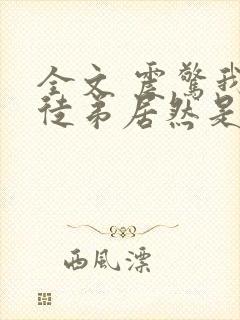 全文 震驚我
徒弟居然是
西風漂